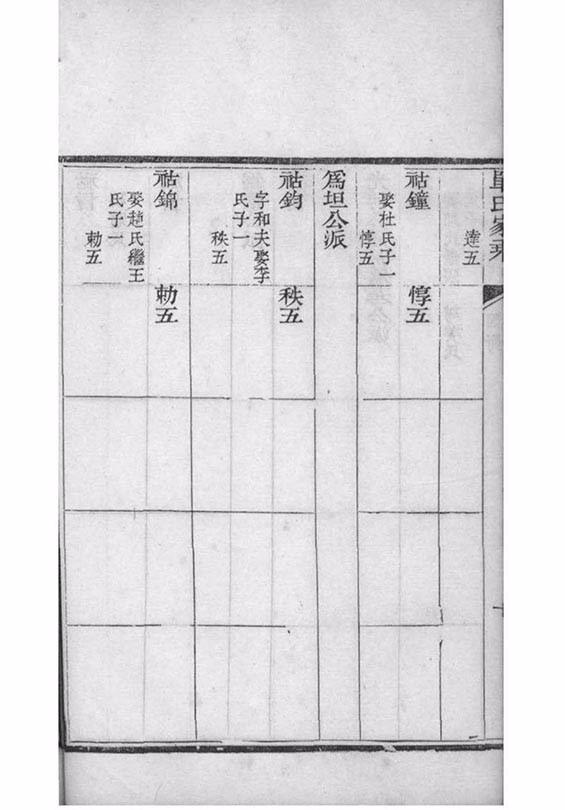 氏家乘
達五
祜鐘 惇五
娶杜氏子一
惇五
爲坦公派
祜鈞 秩五
字和夫娶李
氏子一
秩五
祜錦 勅五
娶趙氏繼王
氏子一
勅五